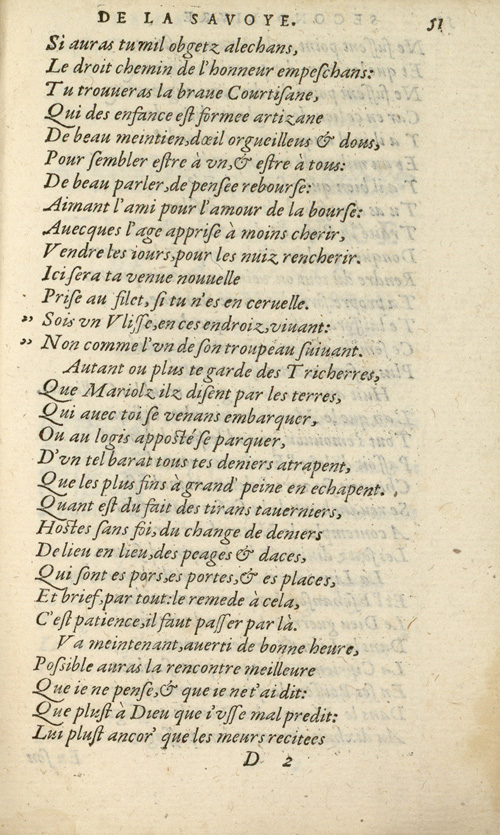 DE LA SAVOYE. 51
Si auras tu mil obgetz alechans,
Le droit chemin de l'honneur empeſchans:
Tu trouueras la braue Courtiſane,
Qui des enfance eſt formee artizane
De beau meintien, dœil orgueilleus & dous,
Pour ſembler eſtre à vn, & eſtre à tous:
De beau parler, de penſee rebourſe:
Aimant l'ami pour l'amour de la bourſe:
Auecques l'age appriſe à moins cherir,
Vendre les iours, pour les nuiz rencherir.
Ici ſera ta venue nouuelle
Priſe au filet, ſi tu n'es en ceruelle.
„ Sois vn Vliſſe, en ces endroiz, viuant:
„ Non comme l'vn de ſon troupeau ſuiuant.
Autant ou plus te garde des Tricherres,
Que Mariolz ilz diſent par les terres,
Qui auec toi ſe venans embarquer,
Ou au logis appoſté ſe parquer,
D'vn tel barat tous tes deniers atrapent,
Que les plus fins à grand' peine en echapent.
Quant eſt du fait des tirans tauerniers,
Hoſtes ſans foi, du change de deniers
De lieu en lieu, des peages & daces,
Qui ſont es pors, es portes, & es places,
Et brief, par tout: le remede à cela,
C'eſt patience, il faut paſſer par là.
Va meintenant, auerti de bonne heure,
Poſsible auras la rencontre meilleure
Que ie ne penſe, & que ie ne t'ai dit:
Que pluſt à Dieu que i'vſſe mal predit:
Lui pluſt ancor' que les meurs recitees
D 2